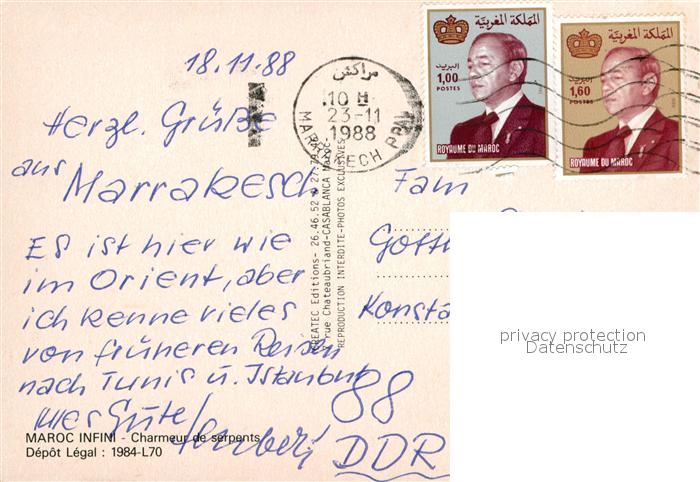 18.11.88
Herzl. Grüße
aus Marrakesch
Es ist hier wie
im Orient, aber
ich kenne vieles
von früheren Reisen
nach Tunis u. Istanbul
Alles Gute
MAROC INFINI - Charmeur de serpents
Dépôt Légal : 1984-L70
CREATEC Editions- 26.46.52
rue Chateaubriand-CASABLANCA Maroc
REPRODUCTION INTERDITE-PHOTOS EXCLUSIVES
مراكش
10 H
23-11
1988
MARRAKECH PPAL
المملكة المغربية
البريد
1,00
POSTES
ROYAUME DU MAROC
المملكة المغربية
البريد
1,60
POSTES
ROYAUME DU MAROC
Fam
Gotth
Konsta
88
DDR
privacy protection
Datenschutz